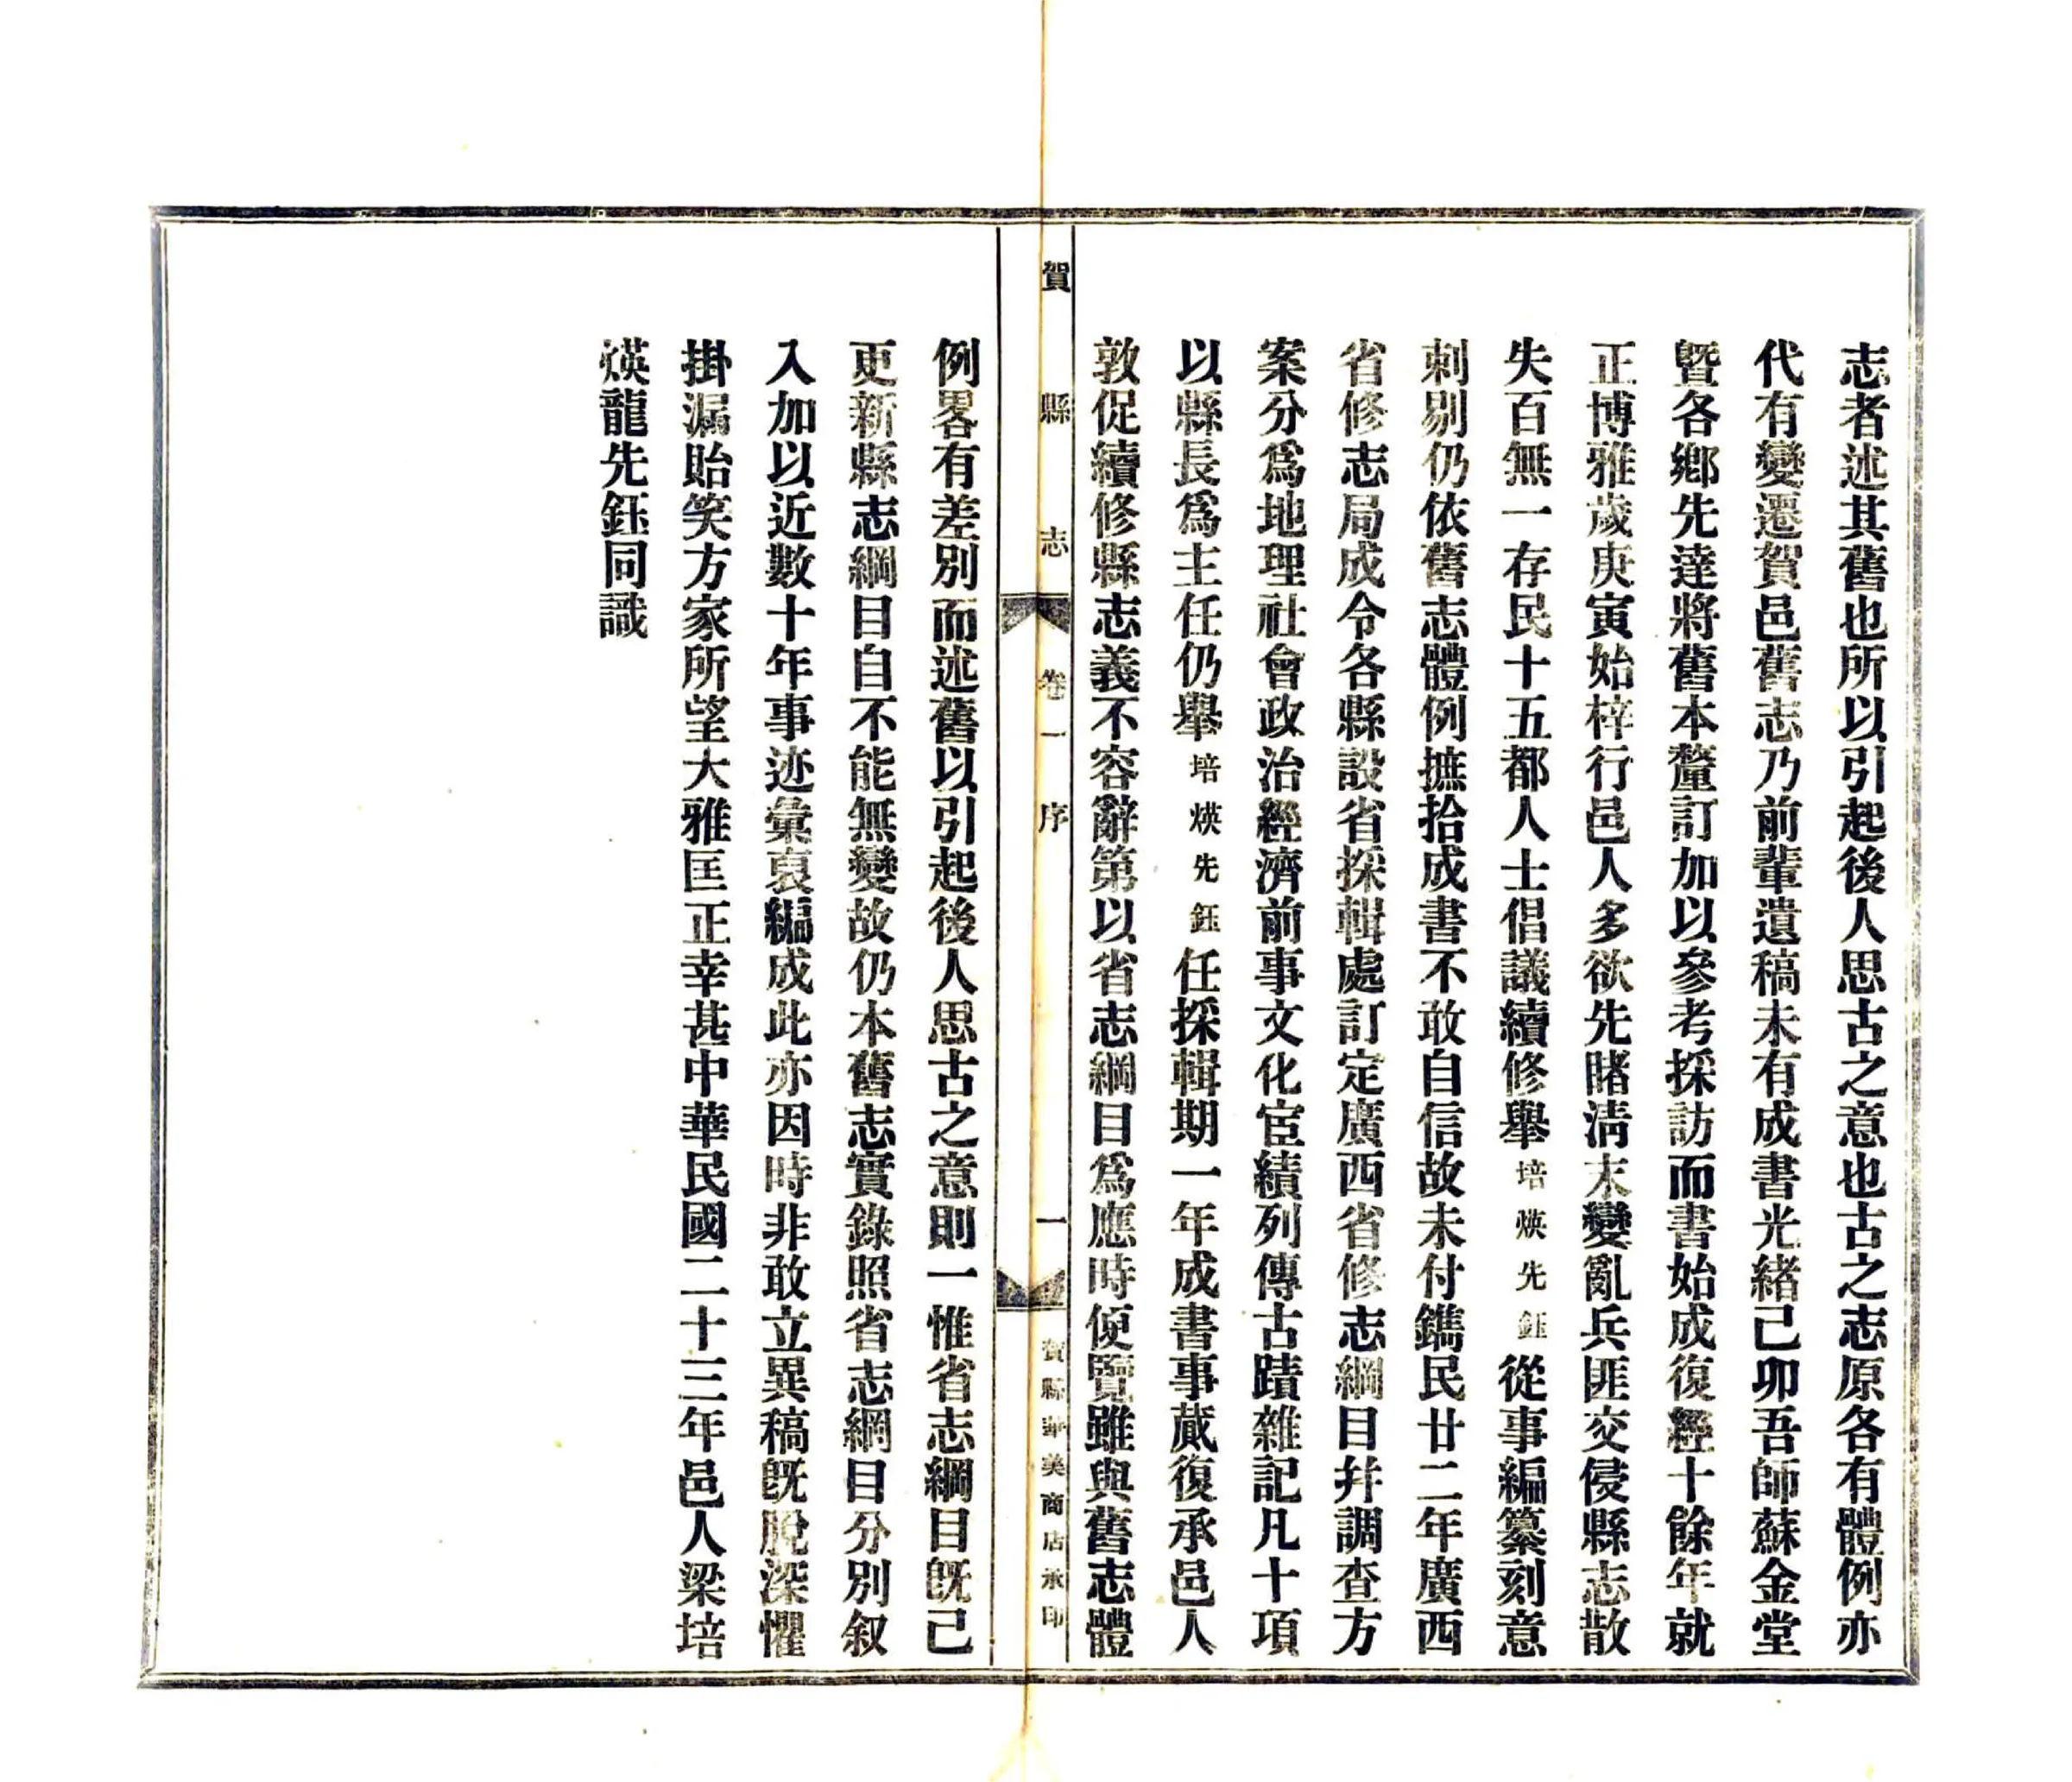 志者述其舊也所以引起後人思古之意也古之志原各有體例亦
代有變遷賀邑舊志乃前輩遺稿未有成書光緒己卯吾師蘇金堂
曁各鄕先達將舊本釐訂加以參考採訪而書始成復經十餘年就
正博雅歲庚寅始梓行邑人多欲先睹淸末變亂兵匪交侵縣志散
失百無一存民十五都人士倡議續修舉培煐先鈺從事編纂刻意
刺剔仍依舊志體例摭拾成書不敢自信故未付鐫民廿二年廣西
省修志局成令各縣設省採輯處訂定廣西省修志綱目幷調查方
案分爲地理社會政治經濟前事文化宦績列傳古蹟雜記凡十項
以縣長爲主任仍舉培煐先鈺任採輯期一年成書事蕆復承邑人
敦促續修縣志義不容辭第以省志綱目爲應時便覽雖與舊志體
賀縣志 卷一 序 一 賀縣華美商店承印
例畧有差別而述舊以引起後人思古之意則一惟省志綱目旣已
更新縣志綱目自不能無變故仍本舊志實錄照省志綱目分別叙
入加以近數十年事迹彙裒編成此亦因時非敢立異稿旣脫深懼
掛漏貽笑方家所望大雅匡正幸甚中華民國二十三年邑人梁培
煐龍先鈺同識